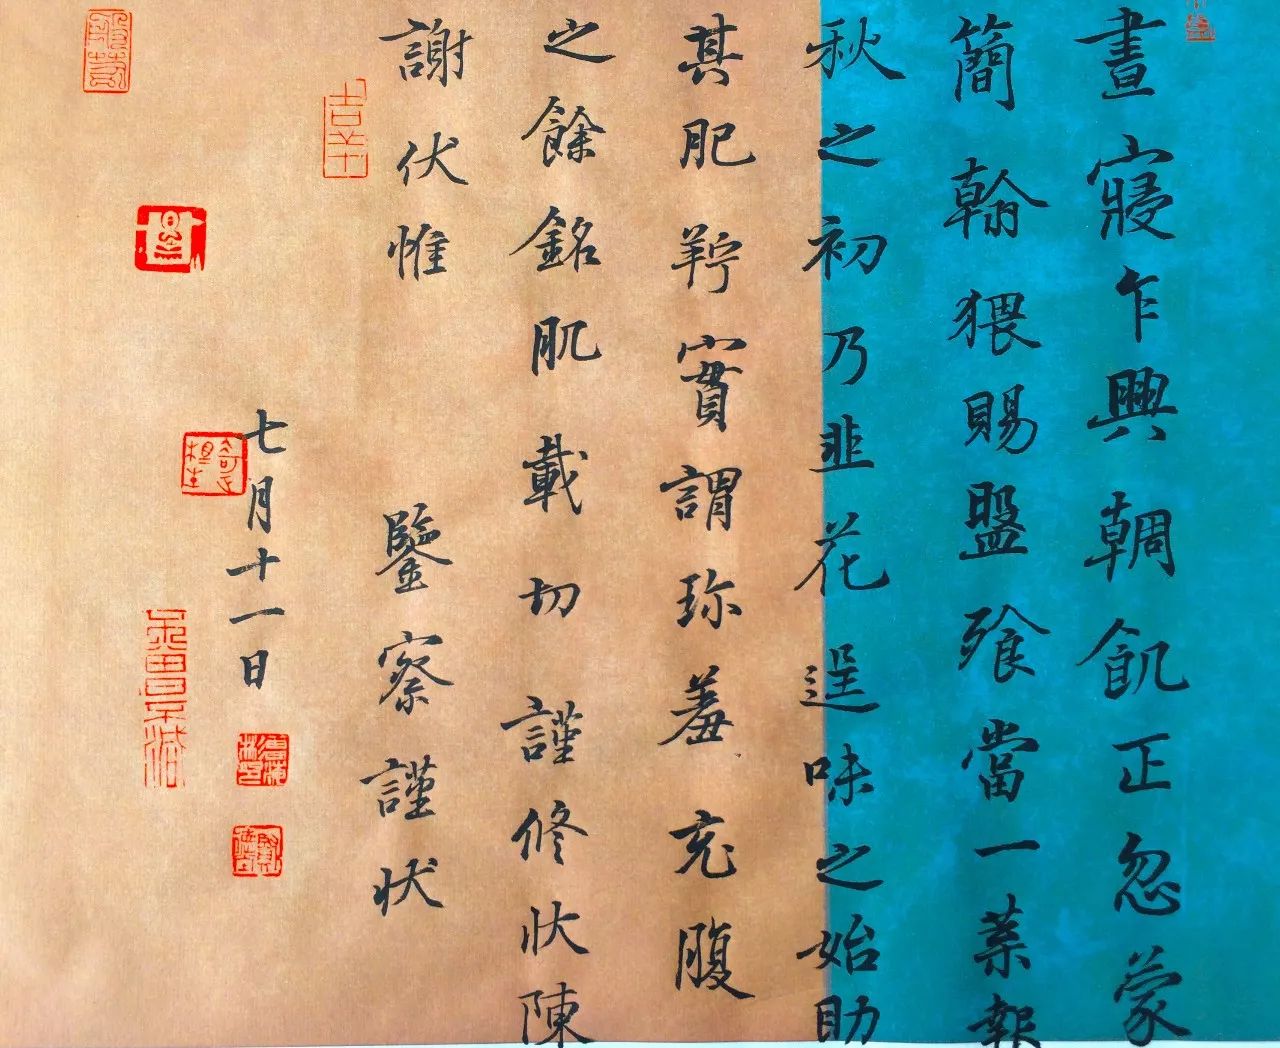 晝寢乍興輖飢正忽蒙
簡翰猥賜盤飧當一葉報
秋之初乃韭花逞味之始助
其肥羜實謂珍羞充腹
之餘銘肌載切謹修狀陳
謝伏惟 鑒察謹狀
七月十一日
吉羊